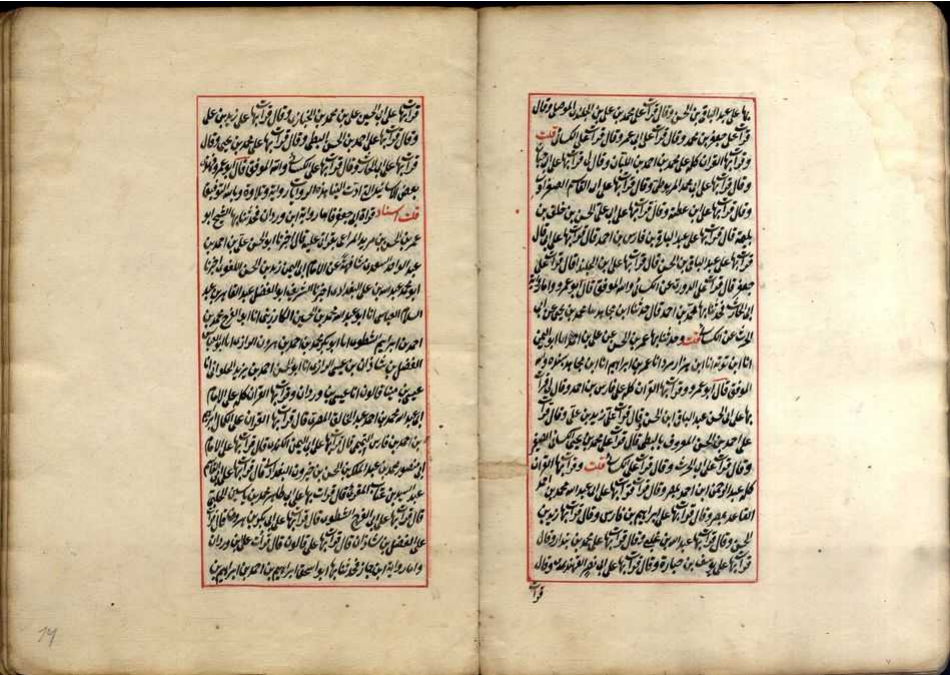 بها على عبد الباقى بن الحسن وقال قرأت على محمد بن على بن الجلندا الموصلى وقال
قرأت على جعفر بن محمد وقال قرأت على ابى عمر وقال قرأت على الكسائى قلت
وقرأت بها القران كله على محمد بن احمد بن اللبان وقال لى قرأت بها على
وقال قرأت بها على ابن محمد وقال قرأت بها على ابى القاسم الصواف
وقال قرأت بها على ابن عطية وقال قرأت بها على ابى على الحسن بن خلف بن
بليمة قال قرأت بها على عبد الباقى بن فارس بن احمد قال قرأت بها على ابى قال
قرأت بها على عبد الباقى بن الحسن قال قرأت بها على ابن الجلندا قال قرأت على
جعفر قال قرأت على الدورى عن الكسائى والله الموفق قال ابو عمرو واما رواية
ابى الحارث فحدثنا بها محمد بن احمد قال حدثنا ابن مجاهد ثنا محمد بن يحيى عن ابى
الحرث عن الكسائى قلت وحدثنا بها عمر بن الحسن عن على بن احمد انا ابو اليمن
انا ابن توبة انا ابن هزارمرد انا عمر بن ابراهيم انا ابن مجاهد بسنده والله
الموفق قال ابو عمرو وقرأت بها القران كله على فارس بن احمد وقال لى قرأت
بها على ابى الحسن عبد الباقى ابن الحسن قال قرأت على زيد بن على وقال قرأت
على احمد بن الحسن المعروف بالبطى وقال قرأت على محمد بن يحيى الكسائى الصغير
وقال قرأت على ابى الحرث وقال قرأت على الكسائى قلت وقرأت بها القران
كله على عبد الرحمن ابن احمد بمصر وقال قرأت بها على ابى عبد الله محمد بن
القاهرة بمصر وقال قرأت بها على ابراهيم بن فارس وقال قرأت بها على زيد بن
الحسن وقال قرأت بها على عبد الله بن على وقال قرأت بها على محمد بن بندار وقال
قرأت بها على يوسف بن جبارة وقال قرأت بها على ابى نصر وقال
قرأت
قرأت بها على ابى الحسين على بن محمد بن الخبازى وقال قرأت بها على زيد بن على
وقال قرأت بها على احمد بن الحسن البطى وقال قرأت بها على محمد بن يحيى وقال
قرأت بها على ابى الحارث وقال قرأت بها على الكسائى والله الموفق قال ابو عمرو فهذه
بعض الاسانيد التى ادت الينا هذه الروايات رواية وتلاوة وبالله التوفيق
قلت اسناد قراءة ابى جعفر فاما رواية ابن وردان فحدثنا بها الشيخ ابو
عمر بن الحسن بن مزيد المراغى بقراءتى عليه قال اخبرنا ابو الحسن على بن احمد بن
عبد الواحد السعدى مشافهة عن الامام ابى اليمن زيد بن الحسن اللغوى اخبرنا
ابو محمد عبد الله بن على البغدادى اخبرنا الشريف ابو الفضل عبد القاهر بن عبد
السلام العباسى انا ابو عبد الله محمد بن الحسين الكارزينى انا ابو الفرج محمد بن
احمد بن ابراهيم الشطوى انا ابو بكر محمد بن احمد بن هرون الرازى انا ابو العباس
الفضل بن شاذان بن عيسى الرازى انا ابو الحسن احمد بن يزيد الحلوانى انا
عيسى بن مينا قالون انا عيسى بن وردان وقرأت بها القران كله على الامام
ابى عبد الله محمد بن احمد عبد الخالق المقرئ قال قرأت بها القران على الكمال ابراهيم
بن احمد بن فارس التميمى قال قرأت بها على ابى اليمن الكندى قال قرأت بها على الامام
ابى منصور محمد بن عبد الملك بن الحسن بن خيرون البغدادى قال قرأت بها على ابى القاسم
عبد السيد بن عتاب المقرئ قال قرأت بها على ابى طاهر محمد بن ياسين الحلبى
قال قرأت بها على ابى الفرج الشطوى قال قرأت بها على ابى بكر بن هرون قال قرأت
على الفضل بن شاذان قال قرأت بها على قالون قال قرأت على بن وردان
واما رواية ابن جماز فحدثنا بها ابو اسحق ابراهيم بن احمد بن ابراهيم بن